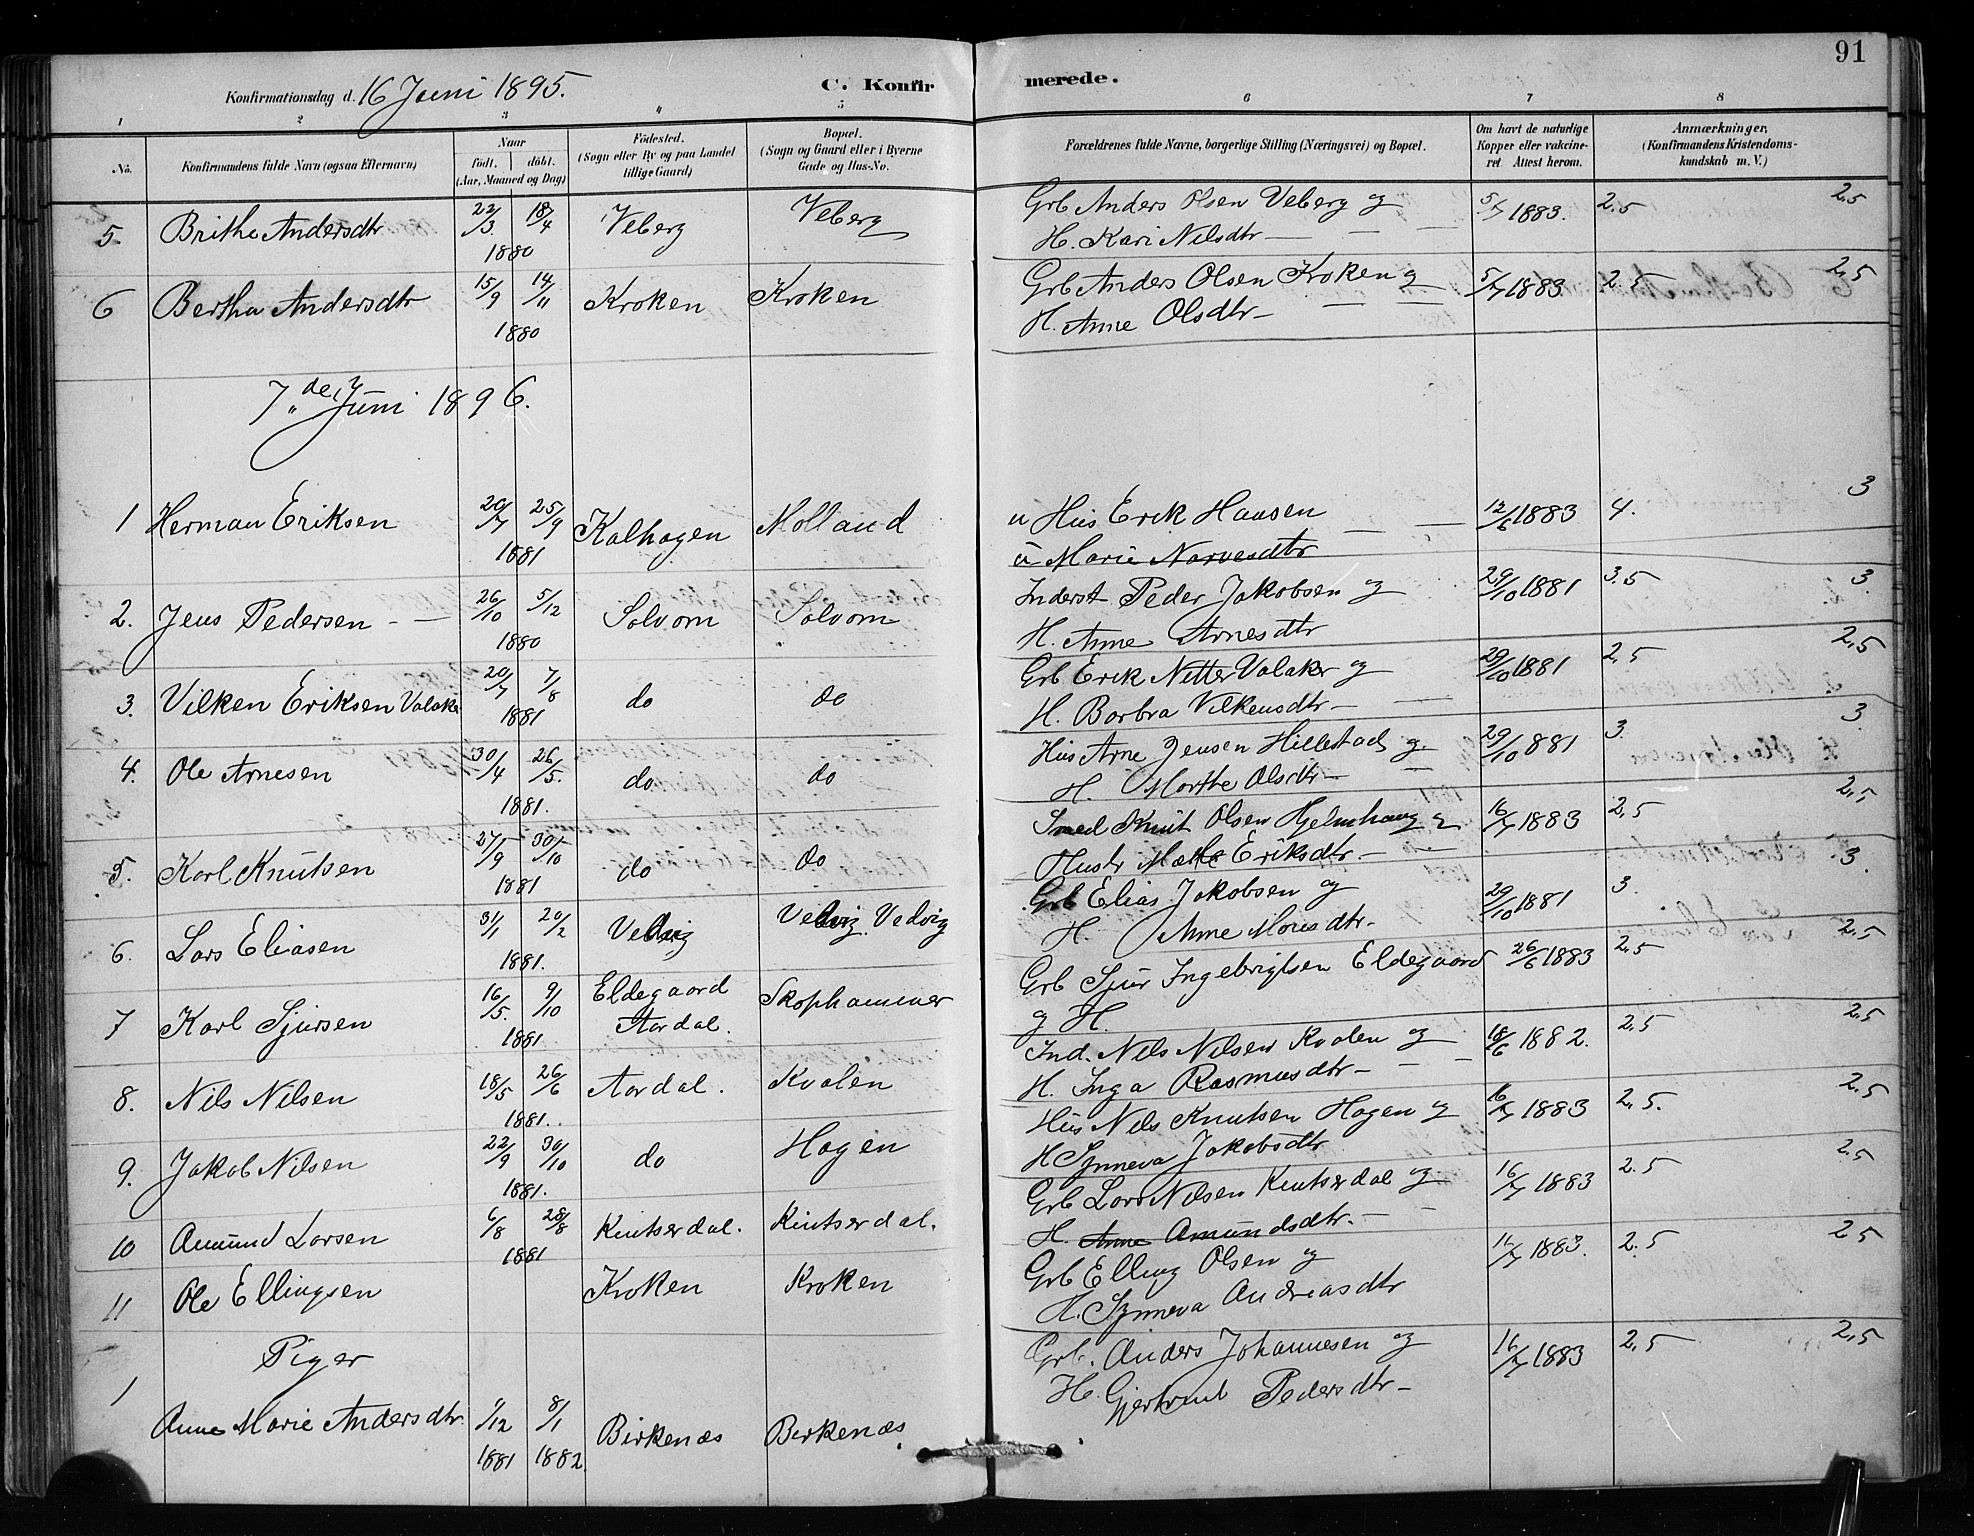 91
Konfirmationsdag d. 16 Juni 1895.
C. Konfirmerede.
1 2 3 4 5 6 7 8
No.
Konfirmandens fulde Navn (ogsaa Efternavn)
Naar
födt. döbt.
(Aar, Maaned og Dag)
Födested.
(Sogn eller By og paa Landet
tillige Gaard)
Bopæl.
(Sogn og Gaard eller i Byerne
Gade og Hus-No.
Forældrenes fulde Navne, borgerlige Stilling (Næringsvei) og Bopæl.
Om havt de naturlige
Kopper eller vakcine-
ret Attest herom.
Anmærkninger,
(Konfirmandens Kristendoms-
kundskab m. V.)
5. Brithe Andersdtr 22/3 18/4 1880 Veberg Veberg Grb Anders Olsen Veberg og 5/7 1883. 2.5 2,5
H. Kari Nilsdtr
6 Bertha Andersdtr 15/9 14/11 1880 Kroken Kroken Grb Anders Olsen Kroken og 5/7 1883. 2.5 2,5
H. Anne Olsdtr
7de Juni 1896.
1 Herman Eriksen 20/7 25/9 1881 Kalhagen Molland u Hus Erik Hansen 12/6 1883 4. 3
u Marie Narvesdtr
2. Jens Pedersen 26/10 5/12 1880 Solvorn Solvorn Inderst Peder Jakobsen og 29/10 1881 3.5 3.
H. Anne Arnesdtr
3. Vilken Eriksen Valaker 20/7 7/8 1881 do do Grb Erik Nitter Valaker og 29/10 1881 2,5 2,5
H. Barbra Vilkensdtr
4. Ole Arnesen 30/4 26/5. 1881. do do Hus Arne Jensen Hillestad og 29/10 881 3. 3
H. Marthe Olsdtr
5. Karl Knutsen 27/9 30/10 1881 do do Smed Knut Olsen Hjelmhaug og 16/7 1883 2,5 2,5
Hustr Mætte Eriksdtr.
6. Lars Eliasen 31/1 20/2 1881. Vedvig Vedvig. Vedvig Grb Elias Jakobsen og 29/10 1881 3. 3
H. Anne Monsdtr.
7 Karl Sjursen 16/5. 9/10 1881 Eldegaard Aardal. Skophammer Grb Sjur Ingebrigtsen Eldegaard 26/6 1883 2,5 2,5
og H.
8. Nils Nilsen 18/5 26/6 1881. Aardal. Kvalen Ind. Nils Nilsen Kvalen og 18/6 1882. 2.5 2,5
H. Inga Rasmusdtr
9. Jakob Nilsen 22/9 30/10 1881. do Hagen Hus Nils Knutsen Hagen og 16/7 1883 2,5. 2,5
H Synneva Jakobsdtr
10 Amund Larsen 6/8 28/8 1881 Kintserdal. Kintserdal. Grb Lars Nilsen Kintserdal og 16/7 1883 2.5 2.5
H. Anne Amundsdtr.
11 Ole Ellingsen Kroken Kroken Grb Elling Olsen og 1883. 2.5 2 5
H. Synneva Andreasdtr
Piger
1 Anne Marie Andersdtr. 9/12 1881 8/1 1882. Birkenæs Birkenæs. Grb. Anders Johannesen og 16/7 1883 2,5 2,5
H. Gjertrud Pedersdtr